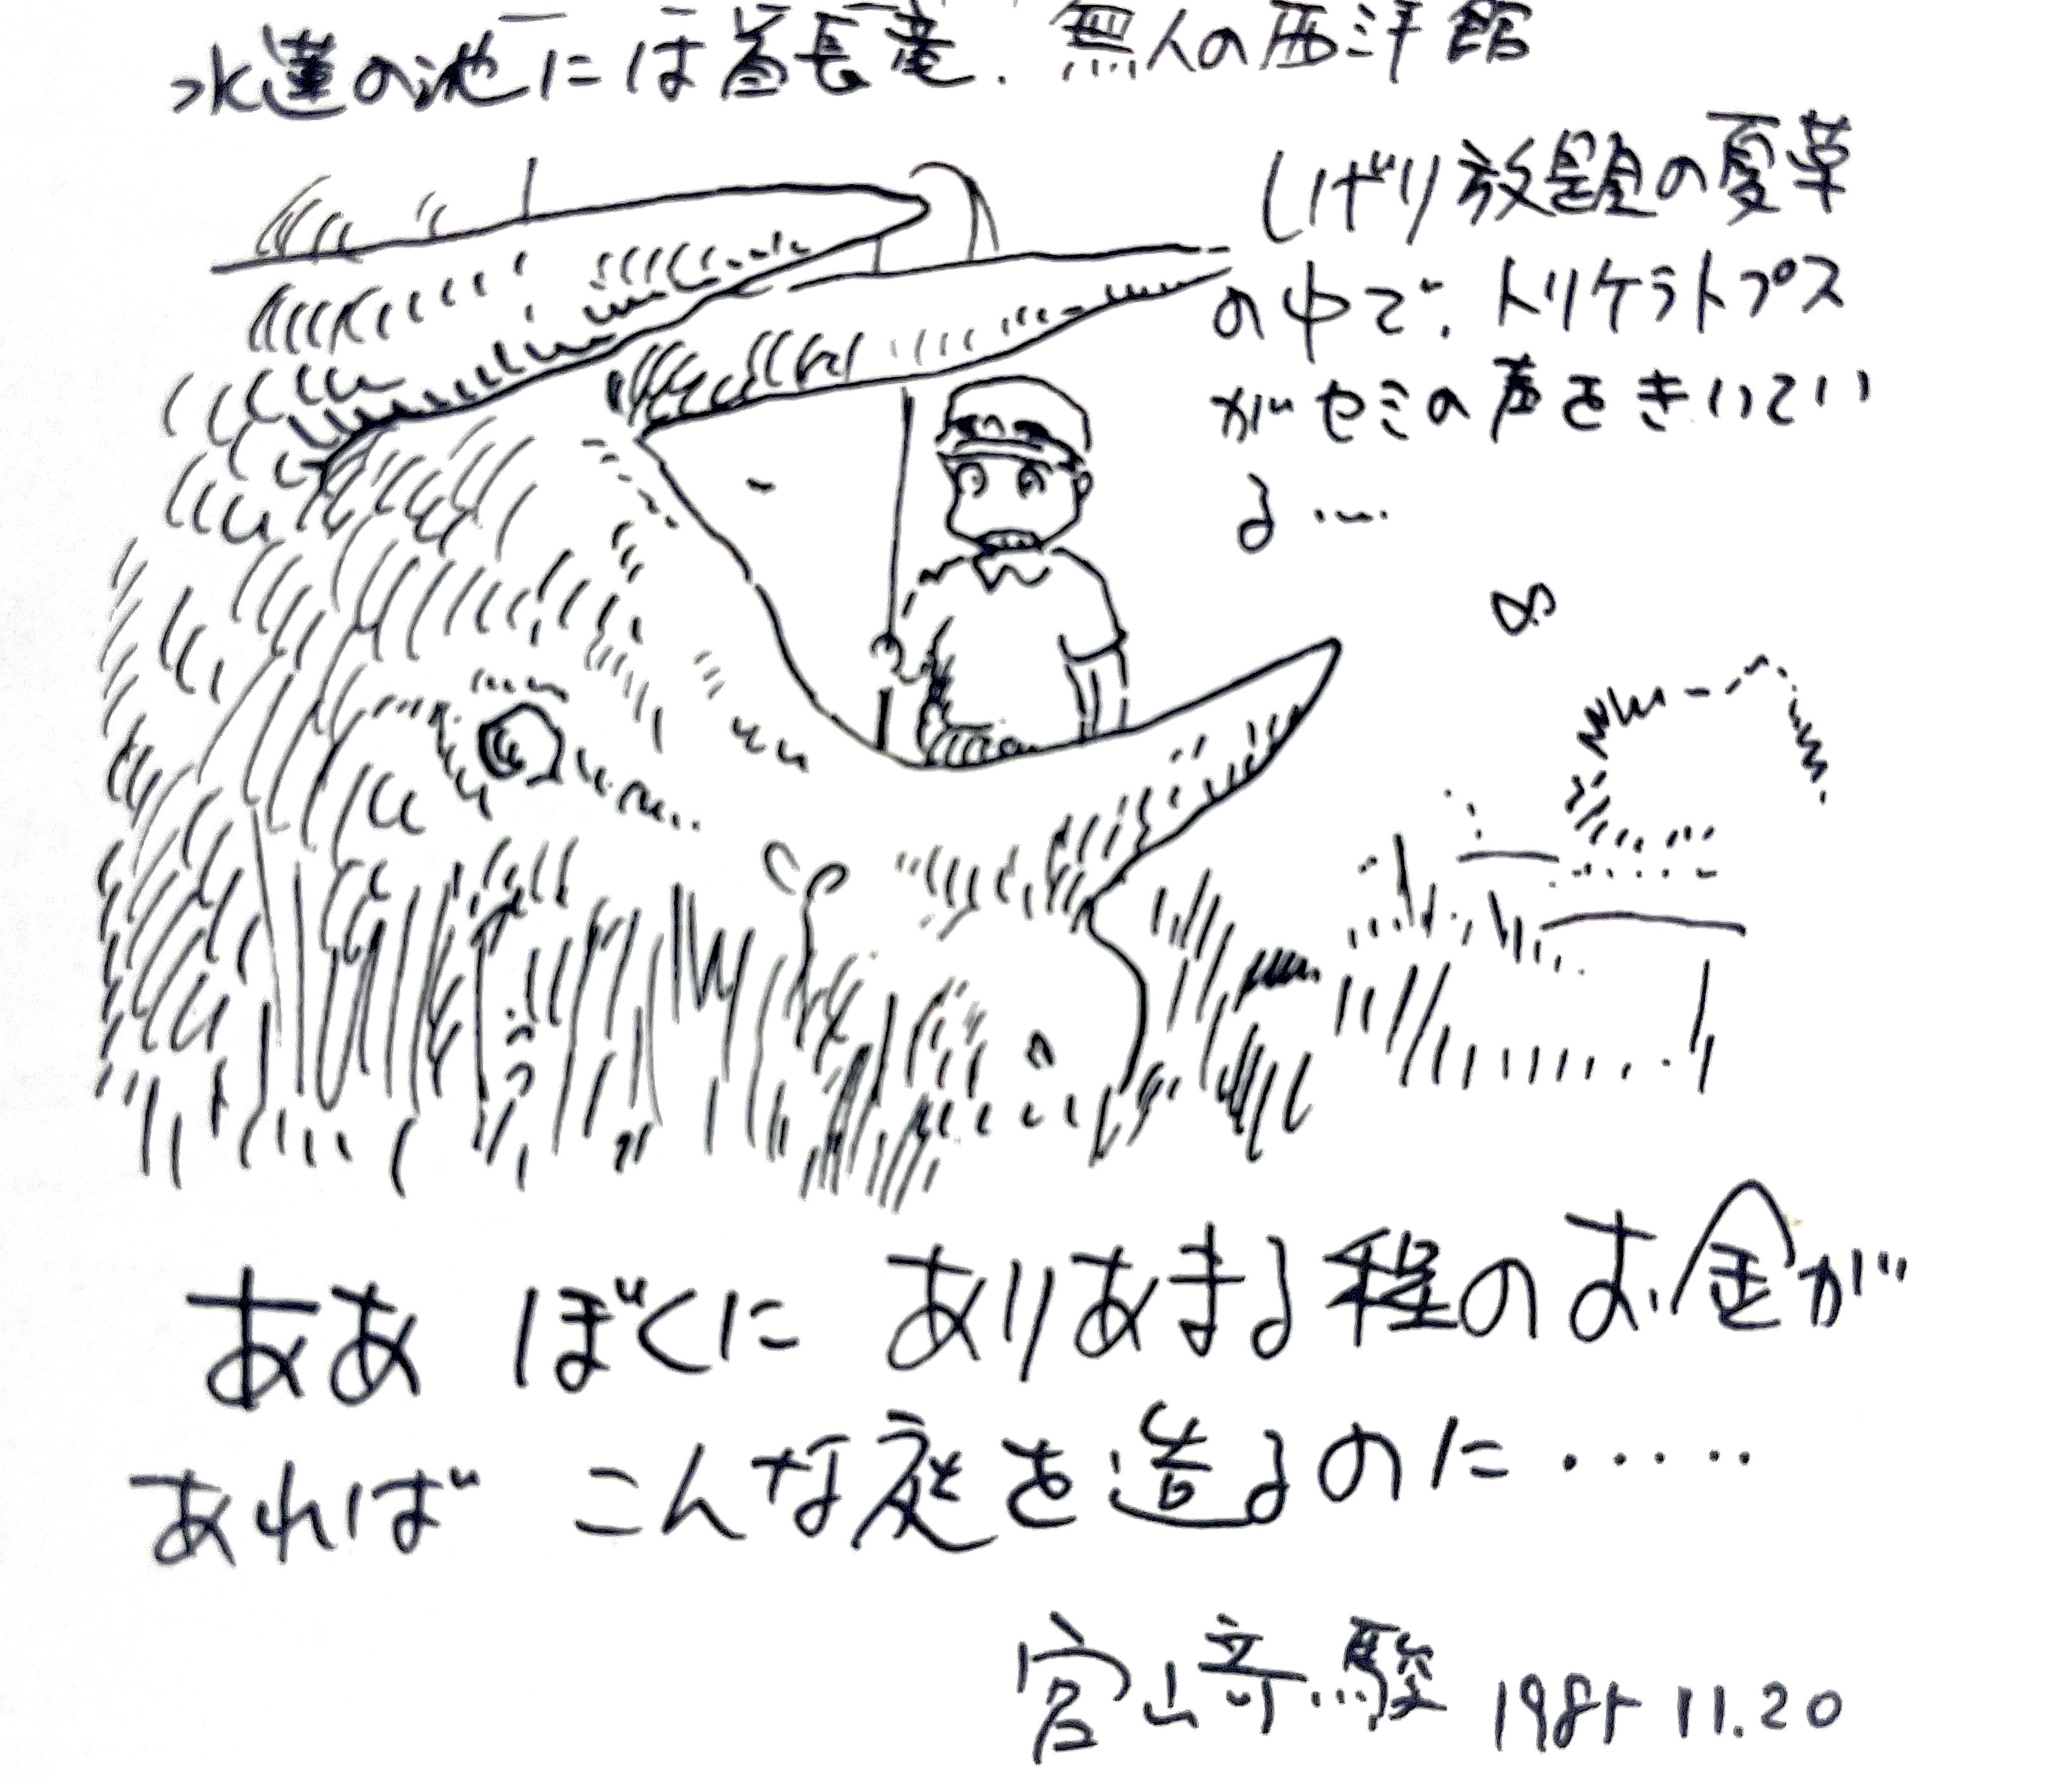 水蓮の池には首長竜．無人の西洋館
しげり放題の夏草
の中で．トリケラトプス
がセミの声をきいてい
る…
ああ ぼくに ありあまる程のお金が
あれば こんな庭を造るのに‥‥‥
宮崎駿 1985 11.20